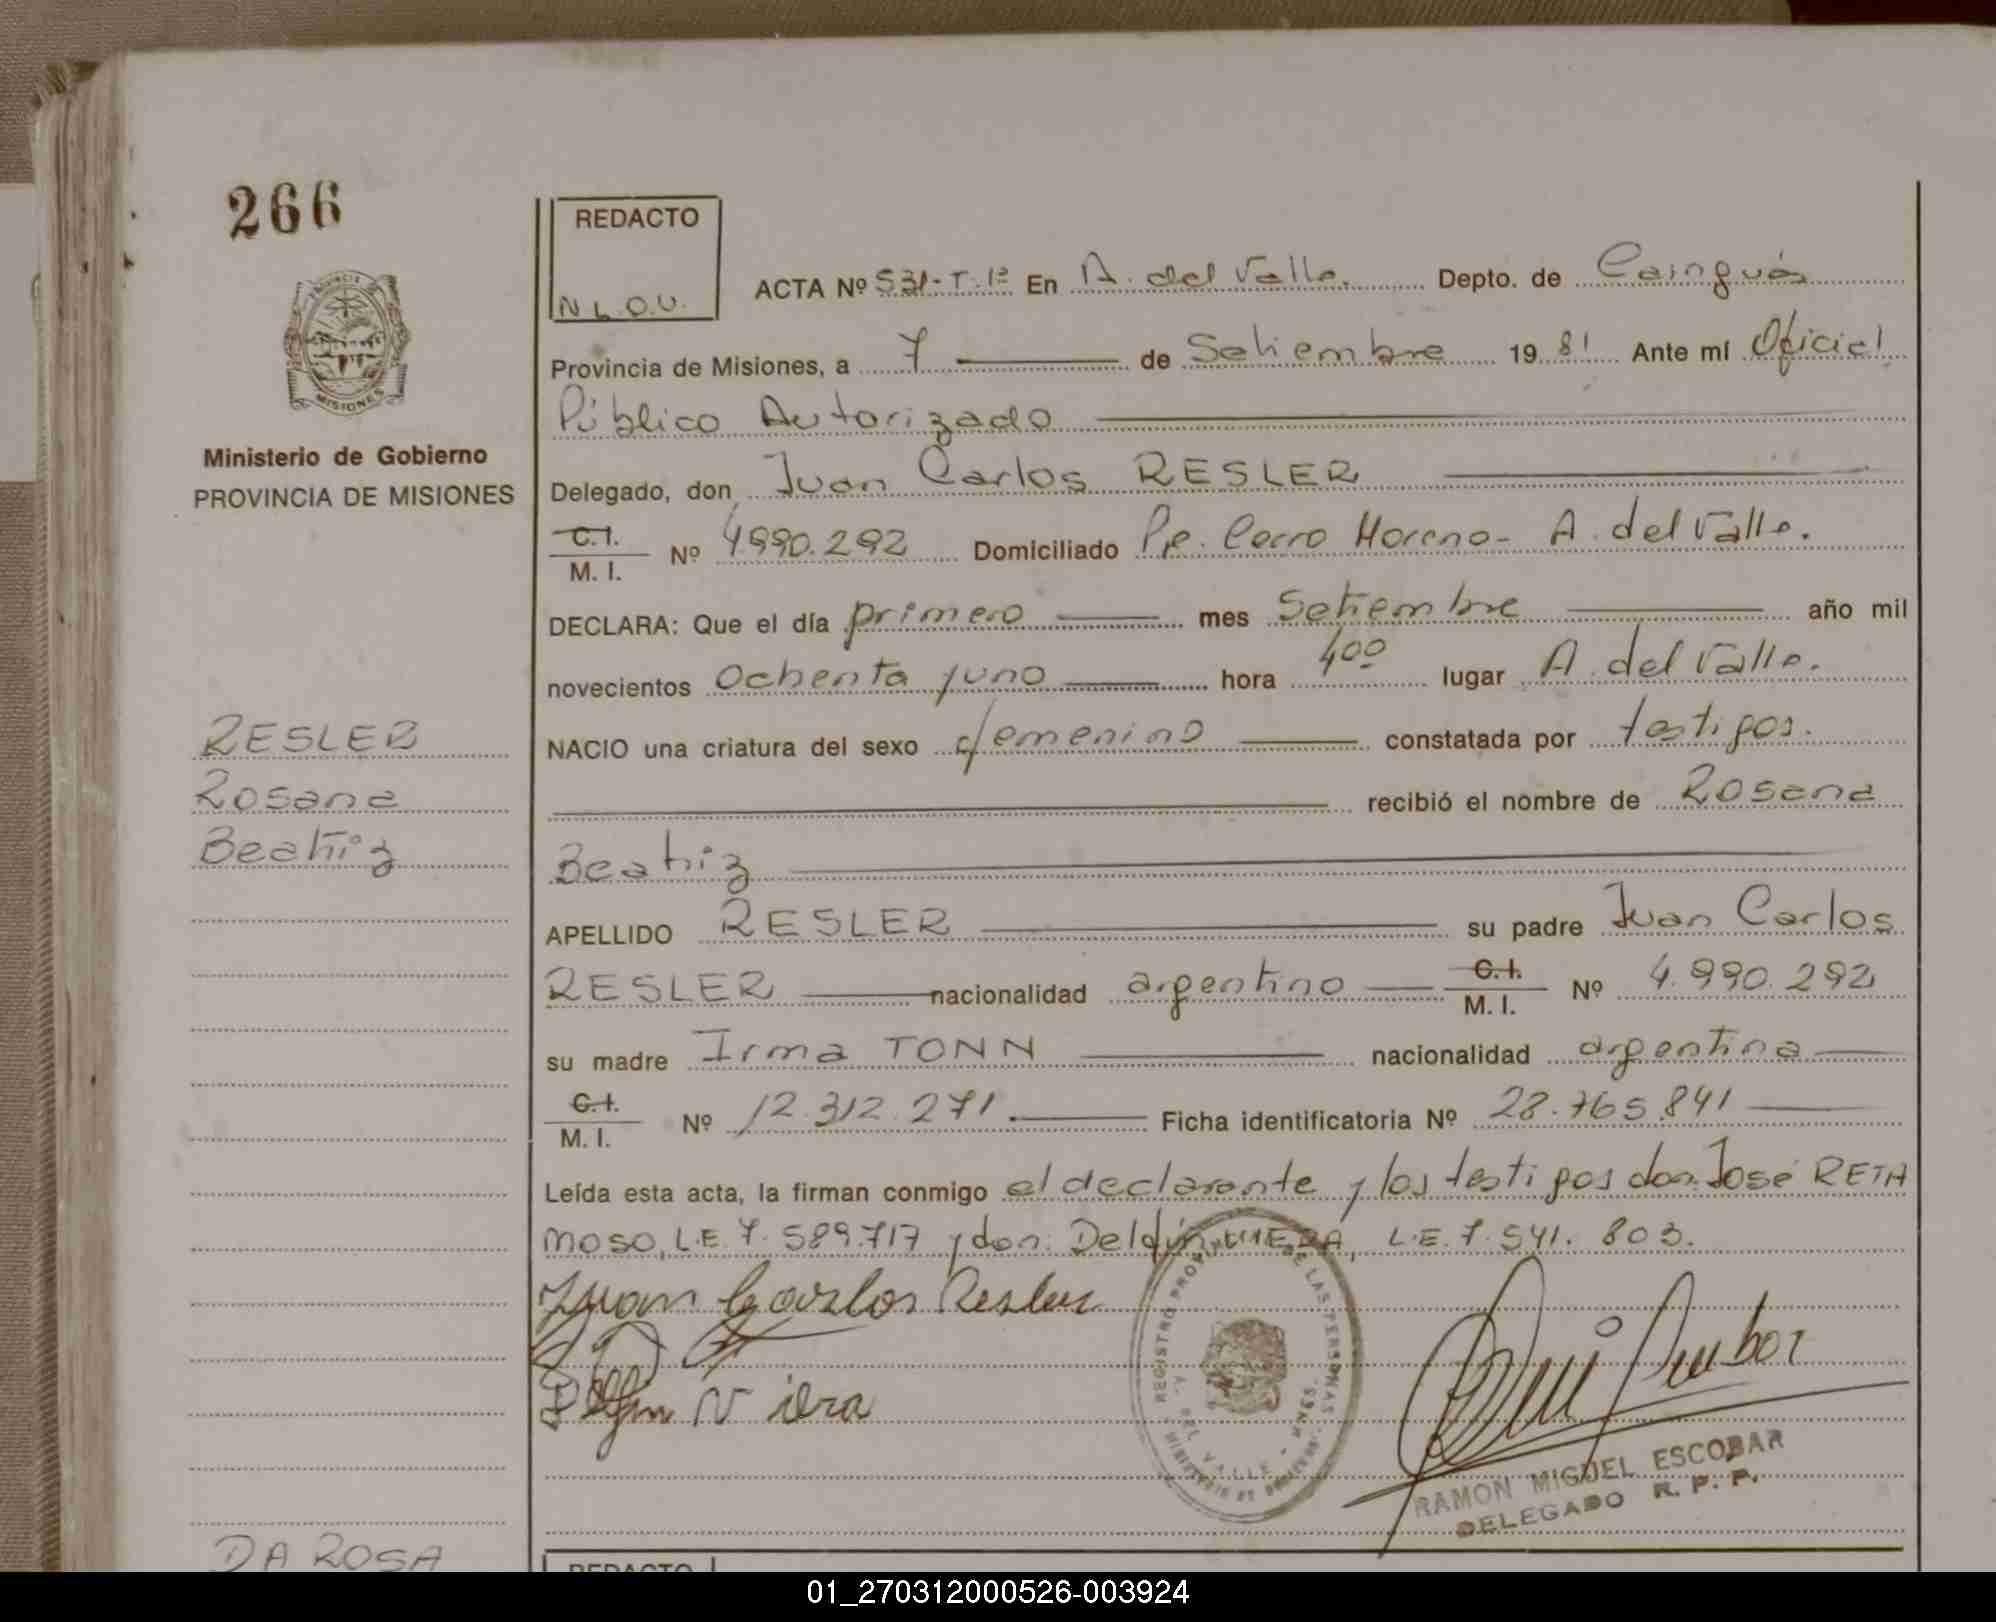 266
REDACTO
N L.O.U.
ACTA Nº 531-T-1º En A. del Valle. Depto. de Cainguás
Provincia de Misiones, a 7 de Setiembre 1981 Ante mí Oficial
Público Autorizado
Ministerio de Gobierno
PROVINCIA DE MISIONES
Delegado, don Juan Carlos RESLER
C.I.
M. I. Nº 4.990.292 Domiciliado Pje. Cerro Moreno - A. del Valle.
DECLARA: Que el día primero mes Setiembre año mil
novecientos Ochenta y uno hora 4oo lugar A. del Valle.
RESLER
Rosana
Beatriz
NACIO una criatura del sexo femenino constatada por testigos.
recibió el nombre de Rosana
Beatriz
APELLIDO RESLER su padre Juan Carlos
RESLER nacionalidad argentino C.I. M. I. Nº 4.990.292
su madre Irma TONN nacionalidad argentina
C.I.
M. I. Nº 12.312.271 Ficha identificatoria Nº 28.765.841
Leída esta acta, la firman conmigo el declarante y los testigos don: José RETA
MOSO, L.E. 7.589.717 y don: Delfín VIERA, L.E. 7.541.803.
Juan Carlos Resler
Delfin Viera
REGISTRO PROVINCIAL DE LAS PERSONAS
A. DEL VALLE - MNES.
MINISTERIO DE GOBIERNO
RAMON MIGUEL ESCOBAR
DELEGADO R. P. P.
DA ROSA
REDACTO
01_270312000526-003924